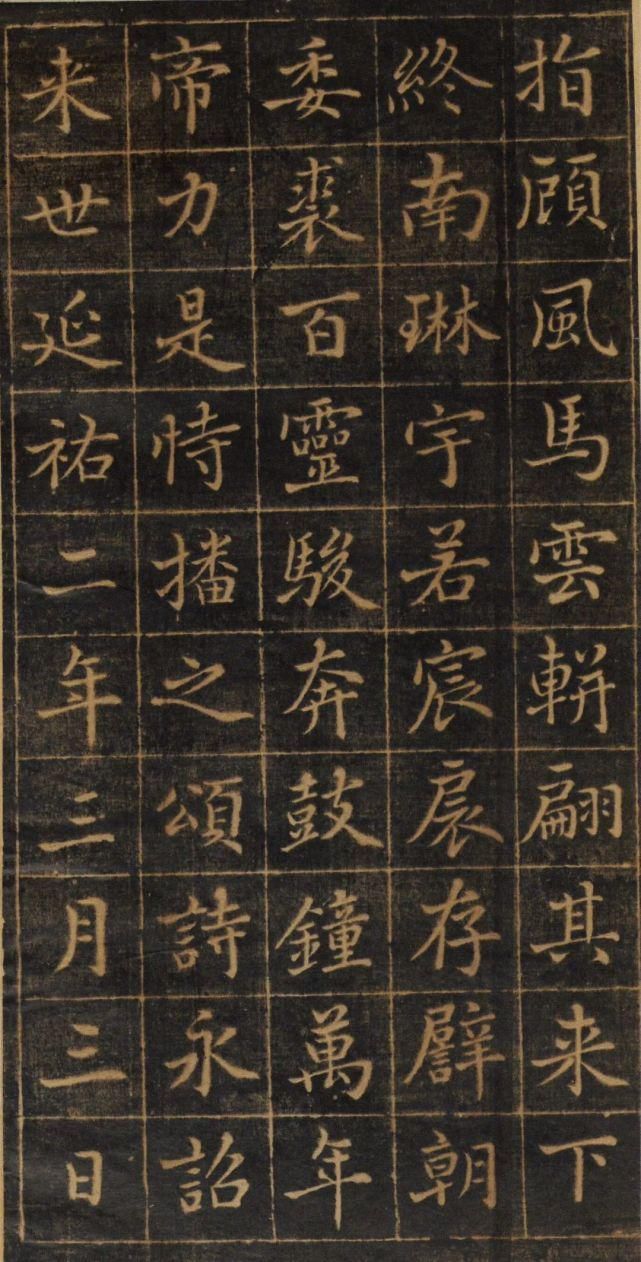 指顧風馬雲輧翩其来下
終南琳宇若宸扆存譬朝
委裘百靈駿奔鼓鐘萬年
帝力是恃播之頌詩永詔
来世延祐二年三月三日